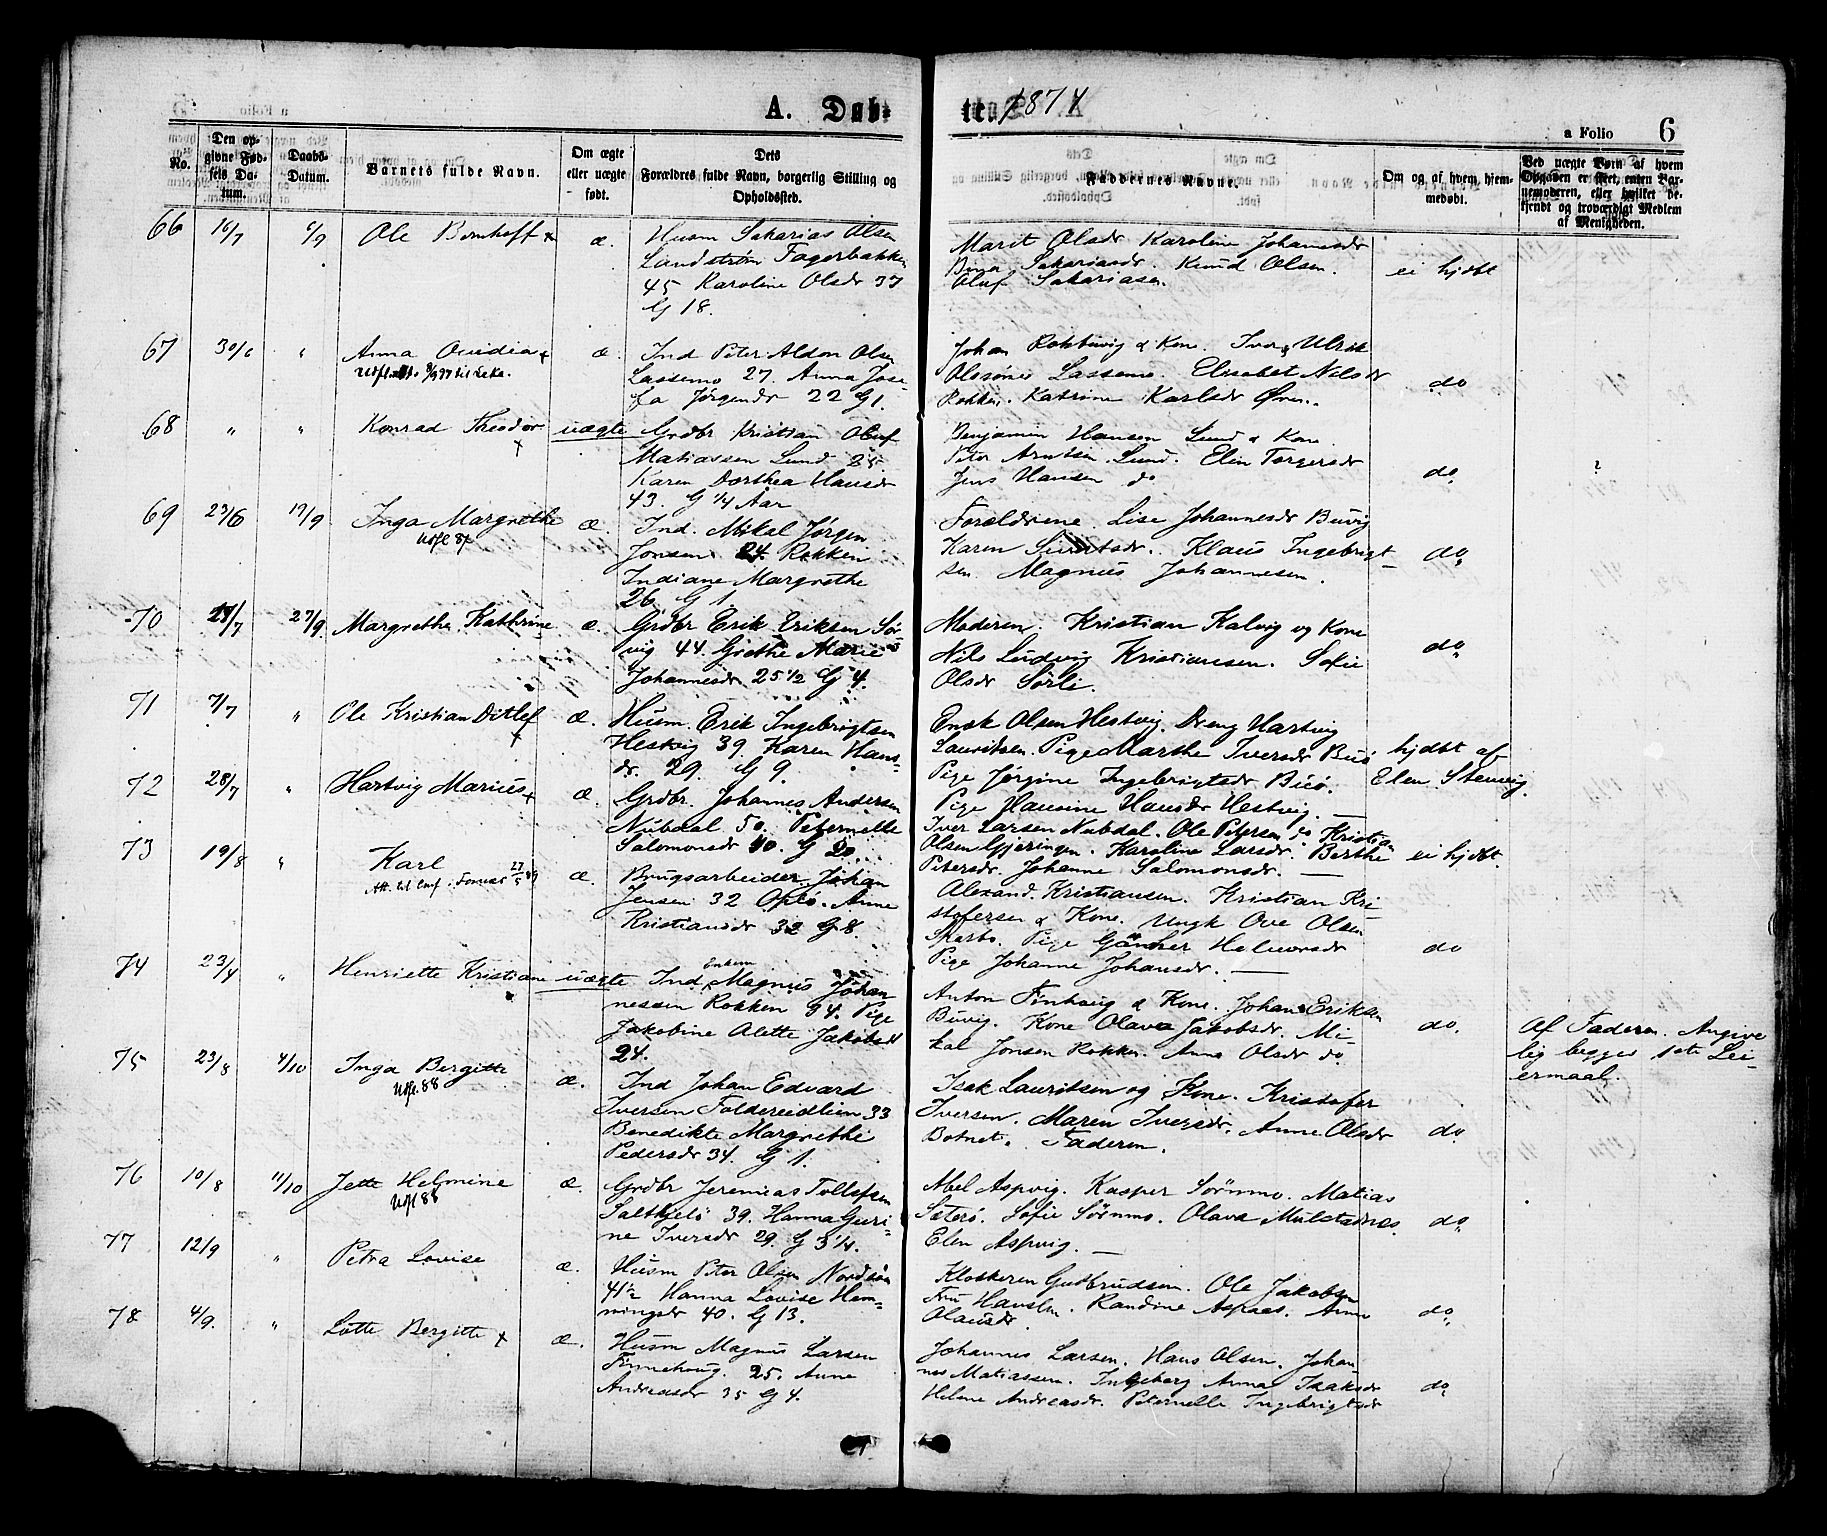 A. Døb-
te 1874
a Folio 6
No.
Den op-
givne Fød-
sels Da-
tum.
Daabs-
Datum.
Barnets fulde Navn.
Om ægte
eller uægte
født.
Dets
Forældres fulde Navn, borgerlig Stilling og
Opholdssted.
Faddernes Navne.
Om og af hvem hjem-
medøbt.
Ved uægte Børn af hvem
Opgaven er skeet, enten Bar-
nemoderen, eller hvilket be-
kjendt og troværdigt Medlem
af Menigheden.
66 16/7 6/9 Ole Bernhoff æ. Husm Sakarias Olsen
Landstrøm Fagerbakken
45 Karoline Olsdr 37
G 18.
Marit Olsdr Karoline Johannesdr
Sakariasdr. Knud Olsen.
Oluf Sakariasen.
ei hjdbt
67 30/6 " Anna Ovidia æ. Ind Peter Aldon Olsen
til Leka.
Lassemo 27. Anna Jose-
fa Jørgensdr 22 G 1.
Johan & Kone. Iver & Ulrik
Olesønner Lassemo. Elisabet Nilsdr
Rokken. Katrine Karlsdr
do
68 " " Konrad Theodor uægte Grdbr Kristian Oluf
Matiassen Lund 25
Karen Dorthea Hansdr
43. G 1/4 Aar
Benjamin Hansen Lund & Kone.
Peter Arntsen Lund. Elen Torgersdr
Jens Hansen do
do
?
69 23/6 19/9 Inga Margrethe æ. Ind. Mikal Jørgen
Udfl 87
Jonsen 24 Rokken
Indiane Margrethe
26 G 1
Forældrene. Lise Johannesdr Buvig
Karen Sivertsdr. Klaus Ingebrigt-
sen. Magnus Johannesen.
do,
70 27/9 Margrethe Kathrine æ. Grdbr Erik Eriksen Sør-
vig 44. Grethe Marie
Johannesdr 25 1/2 G 4.
Moderen. Kristian Kalvig og Kone
Nils Ludvig Kristiansen. Sofie
Olsdr Sørli.
do,
71 7/7 " Ole Kristian Ditlef æ. Husm. Erik Ingebrigtsen
Hestvig 39. Karen Hans-
dr. 29. G 9.
Enok Olsen Hestvig. Dreng Hartvig
Lauritsen. Pige Marthe Iversdr Buø
Pige Jørgine Ingebrigtsdr Buø.
Pige Hansine Hansdr Hestvig. —
hjdbt af
Elen Stenvig.
72 28/7 " Hartvig Marius æ. Grdbr. Johannes Andersen
Nubdal 50. Peternelle
Salomonsdr 40. G 20
Iver Larsen Nubdal. Ole Petersen do Kristian
Olsen Gjeringen. Karoline Larsdr. Berthe
Petersdr. Johanne Salomonsdr. —
ei hjdbt
73 19/8 " Karl æ. Brugsarbeider Johan
Att. til
Jensen 32 Opløi. Anne
Kristiansdr 32 G 8.
Alexand. Kristiansen. Kristian Kri-
stofersen & Kone. Ungk Ove Olsen
Pige Halvorsdr
Pige Johanne Johansdr. —
do
74 23/4 " Henriette Kristiane uægte Ind Enkem Magnus Johan
nessen Rokken 34. Pige
Jakobine Alette Jakobsdr
24.
Anton Finhoug & Kone. Johan Eriksen
Buvig. Kone Olava Jakobsdr. Mi-
kal Jonsen Rokken. Anna Olsdr do.
do.
Af Faderen. Angive
lig begges 1ste Lei-
ermaal.
75 23/8 4/10 Inga Bergitte æ. Ind Johan Edvard
Udfl 88
Iversen Foldereidlien 33
Benedikte Margrethe
Pedersdr 34. G 1.
Isak Lauritsen og Kone. Kristofer
Iversen. Maren Iversdr. Anne Olsdr
Botnet. Faderen.
do
76 10/8 11/10 Jette Helmine æ. Grdbr Jeremias Tollefsen
Udfl 88
Saltkjelø 39. Hanna Guri-
ne Iversdr 29. G 3 1/4.
Abel Aspvig. Kasper Sørmmo. Matias
Saterø. Sofie Sørmmo. Olava Mulstadnæs.
Elen Aspvig. —
do,
77 12/9 " Petra Lovise æ. Husm Peter Olsen
41 1/2 Hanna Lovise Hem-
mingsdr 40. G 13.
Klokkeren Gudbrudsen. Ole Jakobsen
Fru Randine Aspaas. Anne
Olausdr.
do,
78 4/9. " Lotte Bergitte æ. Husm Magnus Larsen
Finnehoug. 25. Anne
Andreasdr 35 G 4.
Johannes Larsen. Hans Olsen. Johan
nes Matiassen. Ingeborg Anna Isaksdr
Helene Andreasdr. Peternelle Ingebrigtsdr
do,